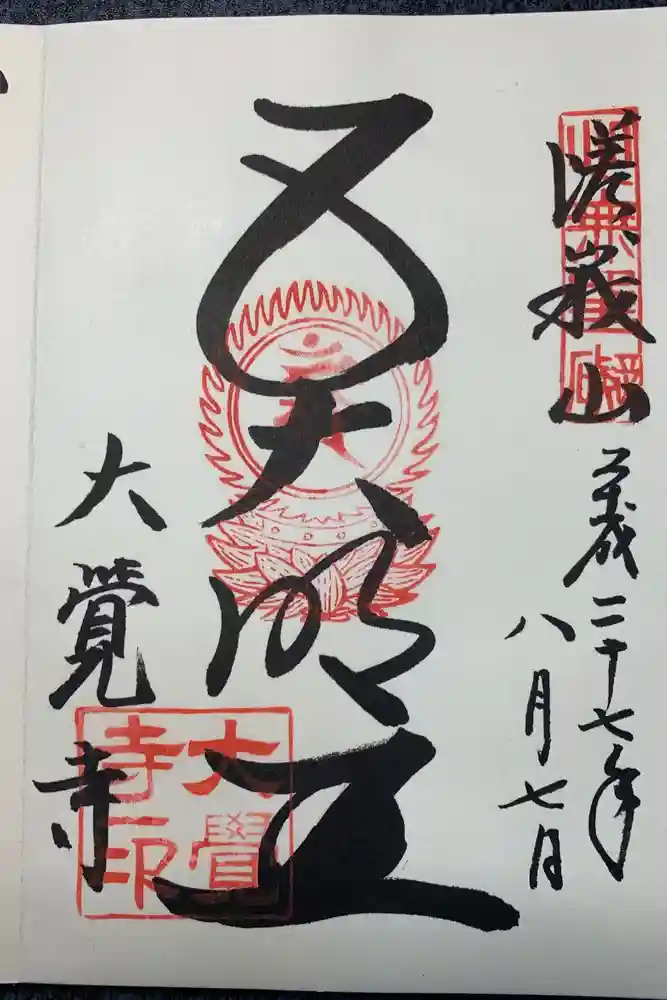 嵯峨山
平成二十七年
八月七日
五大明王
大覺寺
大覺
寺印